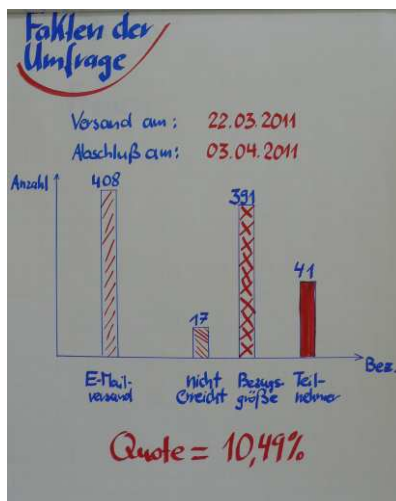 Fakten der
Umfrage
Versand am: 22.03.2011
Abschluß am: 03.04.2011
Anzahl
408
17
391
41
Bez.
E-Mail-
versand
nicht
Erreicht
Bezugs-
größe
Teil-
nehmer
Quote = 10,49%